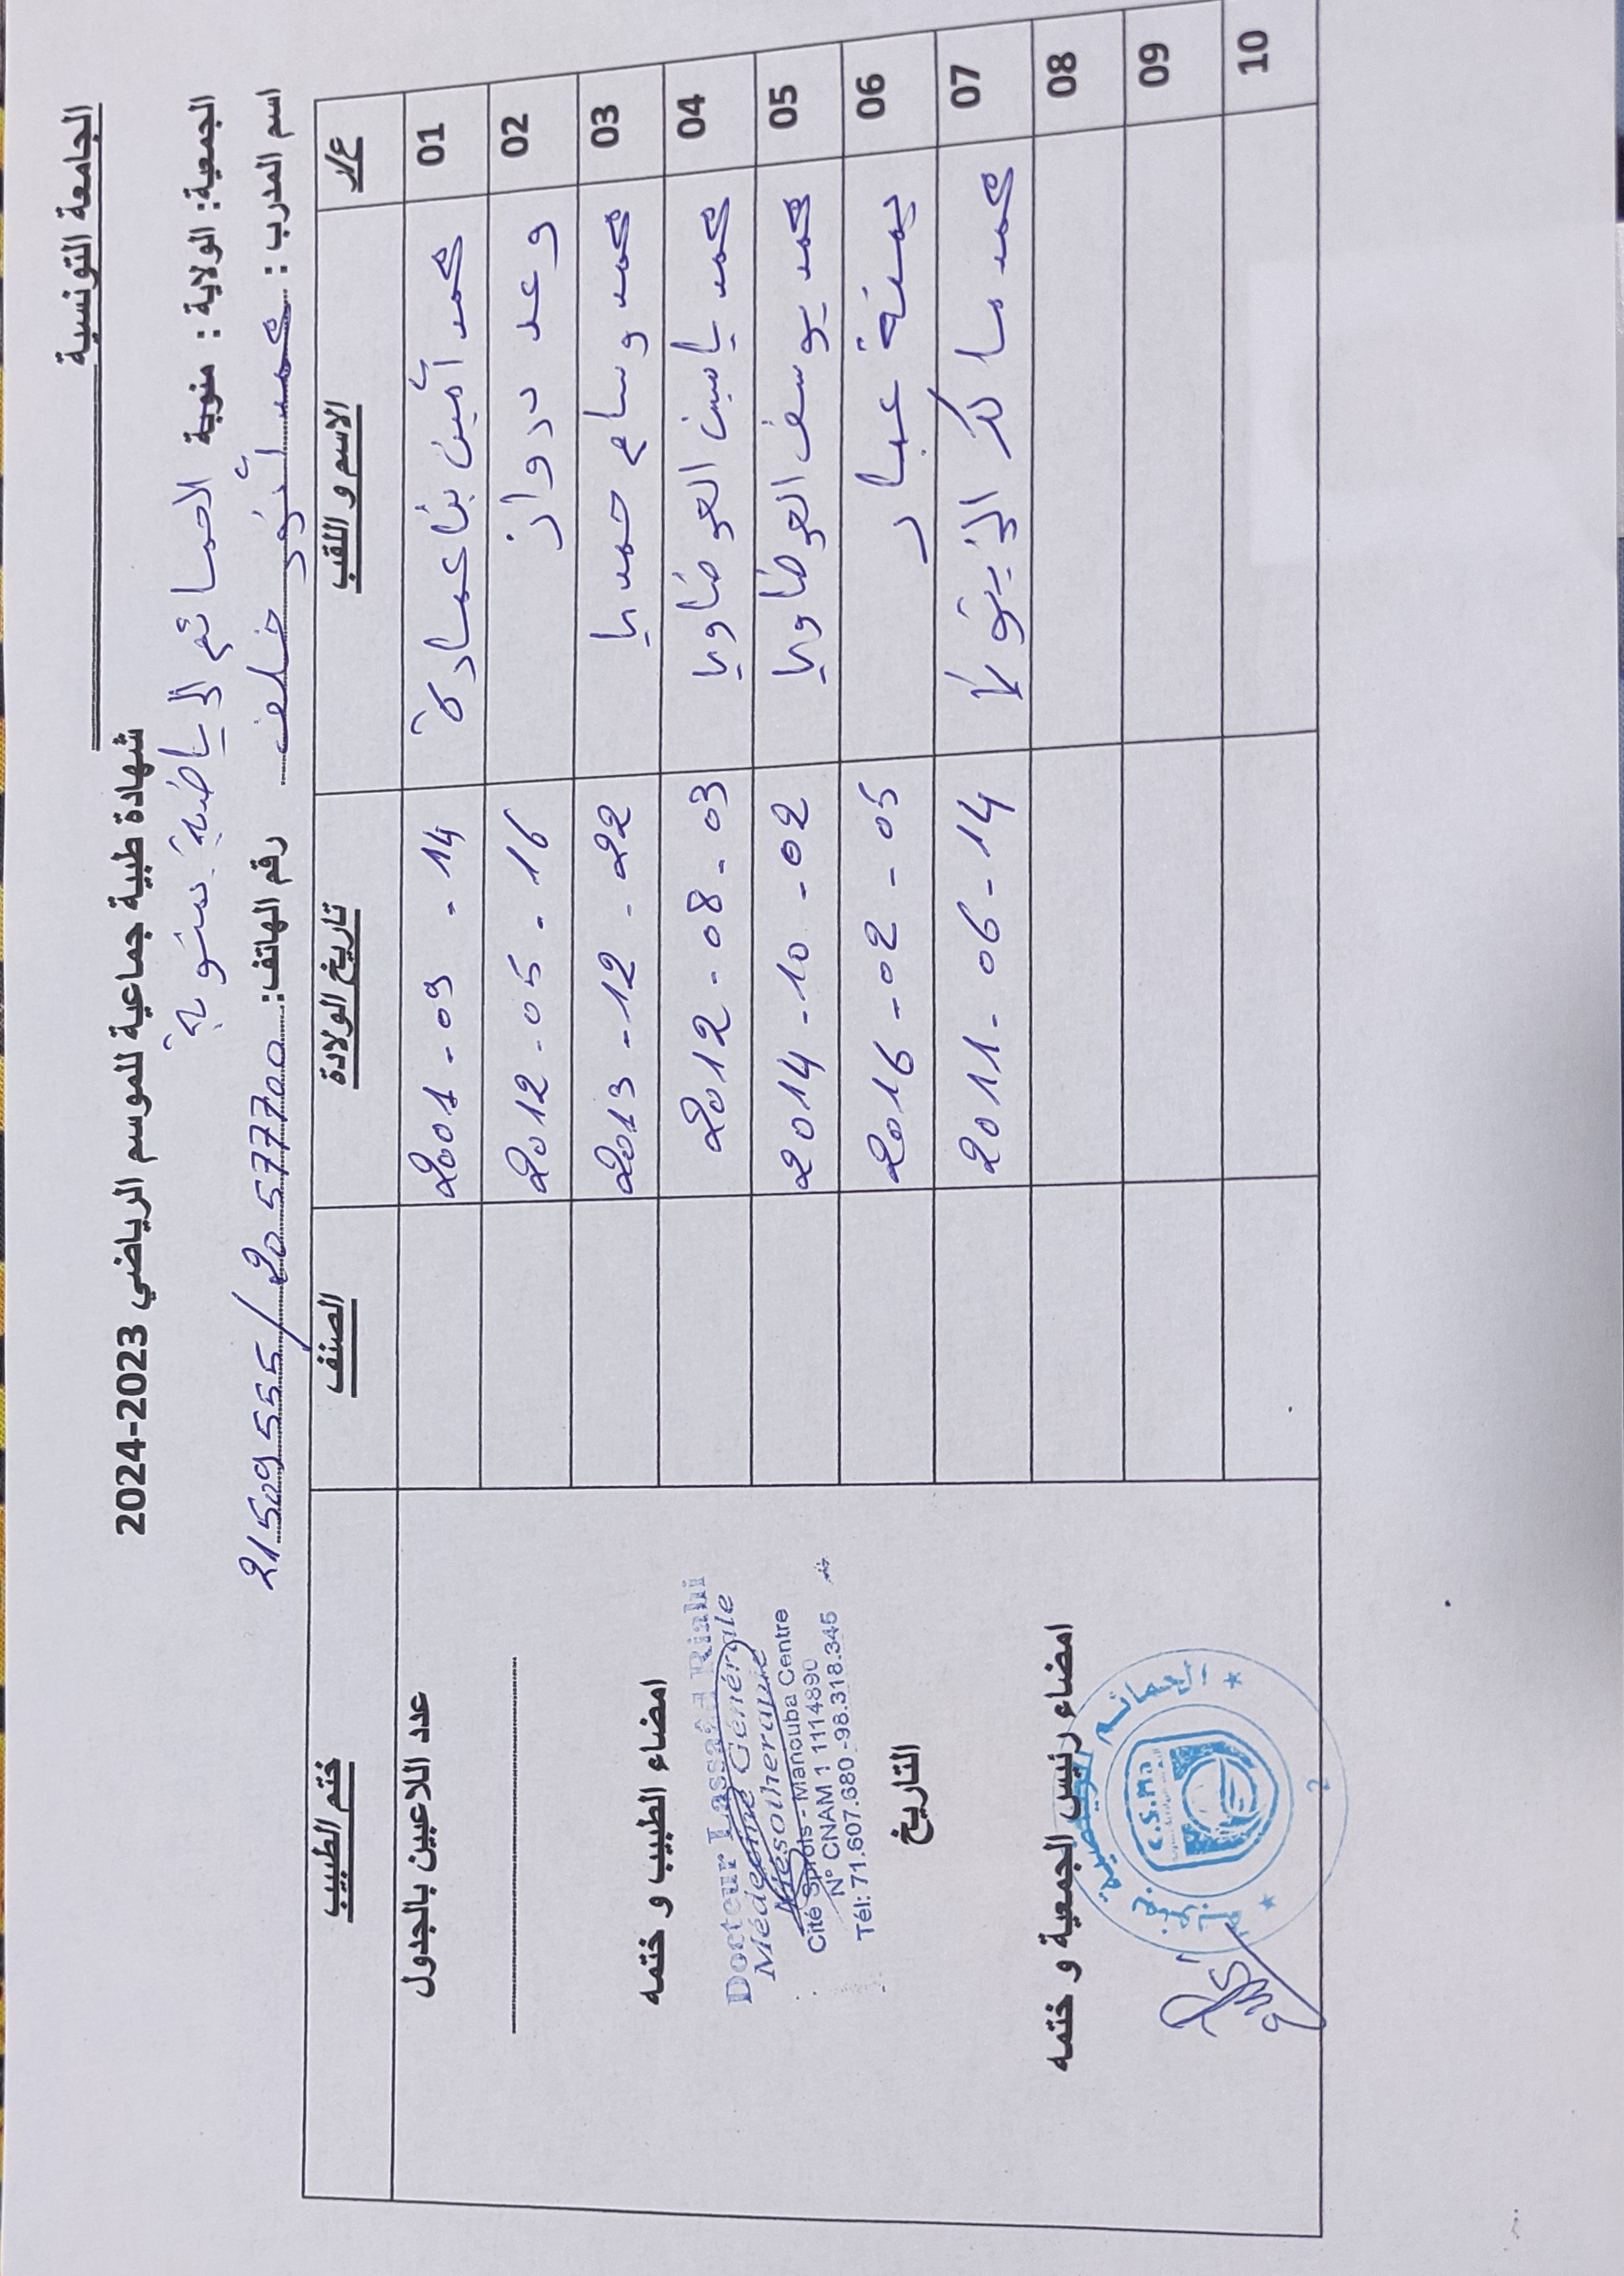 الجامعة التونسية
شهادة طبية جماعية للموسم الرياضي 2023-2024
الجمعية: الولاية : منوبة الحمائم الرياضية بمنوبة
اسم المدرب : محمد أنور خلف رقم الهاتف: 21509555/20577700
ع/ر الاسم و اللقب تاريخ الولادة الصنف ختم الطبيب
01 محمد أمين بناعمارة 2001-09-14
02 وعد درواز 2012-05-16
03 محمد وسام حمدي 2013-12-22
04 محمد ياسين العوضاوي 2012-08-03
05 محمد يوسف العوضاوي 2014-10-02
06 يمنة عبار 2016-02-05
07 محمد مالك 2011-06-14
08
09
10
عدد اللاعبين بالجدول
امضاء الطبيب و ختمه
Docteur Lassaad Riahi
Médecine Générale
Mésotherapie
Cité Sprols - Manouba Centre
N° CNAM 1 1114890
Tél: 71.607.680 -98.318.345
التاريخ
امضاء رئيس الجمعية و ختمه
C.S.Ma